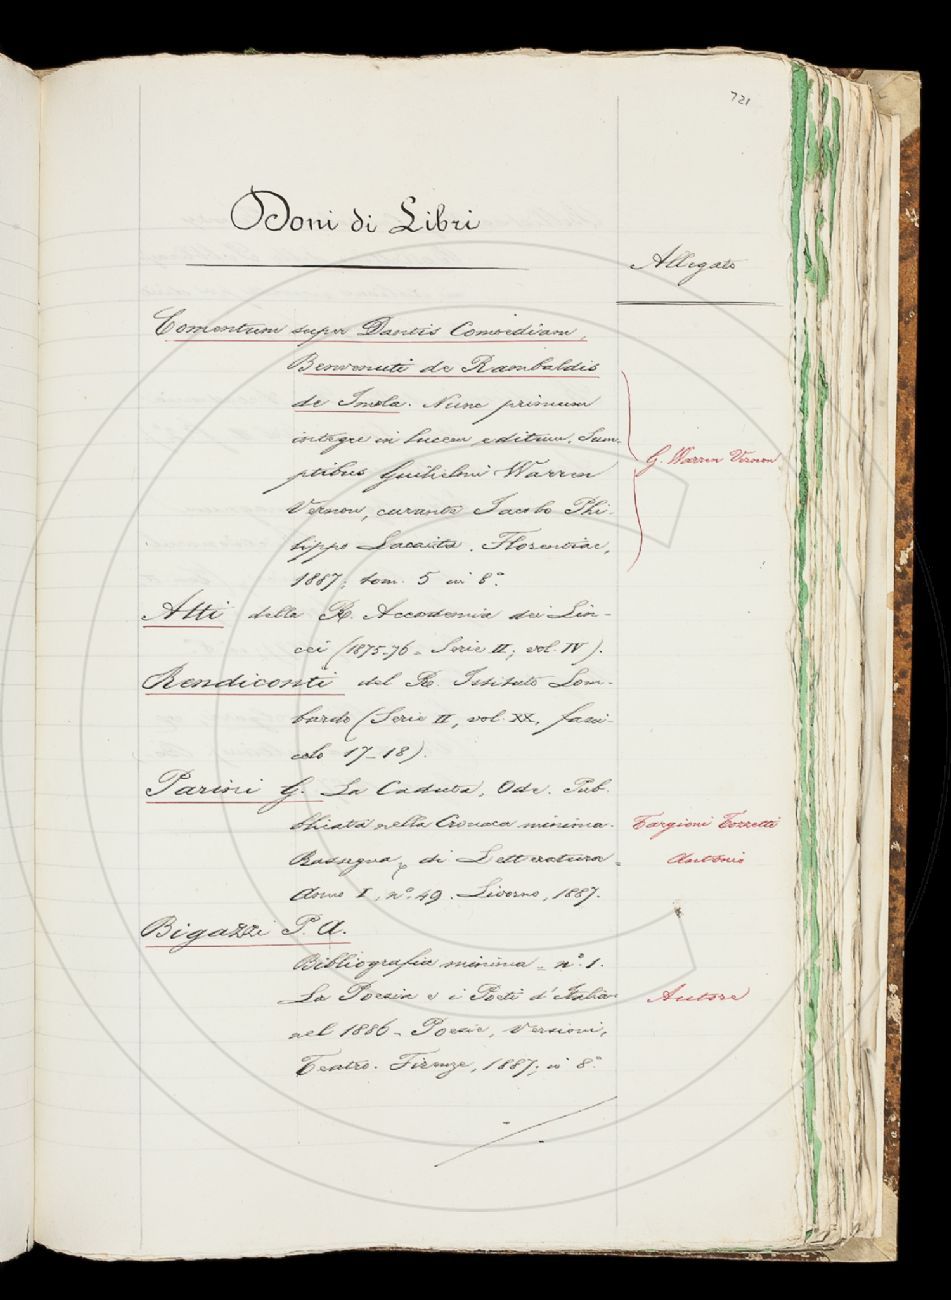 721
Doni di Libri
Allegato
Comentum super Dantis Comoediam,
Benvenuti de Rambaldis
de Imola. Nunc primum
integre in lucem editum, Sum-
ptibus Guilielmi Warren
Vernon, curante Jacobo Phi-
lippo Lacaita. Florentiae,
1887; tom. 5 in 8°.
G. Warren Vernon
Atti della R. Accademia dei Lin-
cei (1875-76 - Serie II; vol. IV).
Rendiconti del R. Istituto Lom-
bardo (Serie II, vol. XX, fasci-
colo 17-18).
Parini G. La Caduta, Ode. Pub-
blicata nella Cronaca minima.
Rassegna di Letteratura -
Anno I, n°. 49. Livorno, 1887.
Targioni Tozzetti
Antonio
Bigazzi P. A.
Bibliografia minima - n°. 1.
La Poesia e i Poeti d'Italia
nel 1886 - Poesie, Versioni,
Teatro. Firenze, 1887; in 8°.
Autore